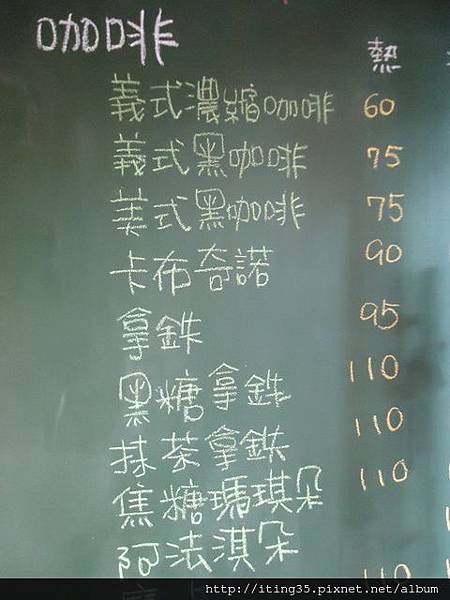 咖啡 熱
義式濃縮咖啡 60
義式黑咖啡 75
美式黑咖啡 75
卡布奇諾 90
拿鉄 95
黑糖拿鉄 110
抹茶拿鉄 110
焦糖瑪琪朵 110
阿法淇朵
110
http://iting35.pixnet.net/album